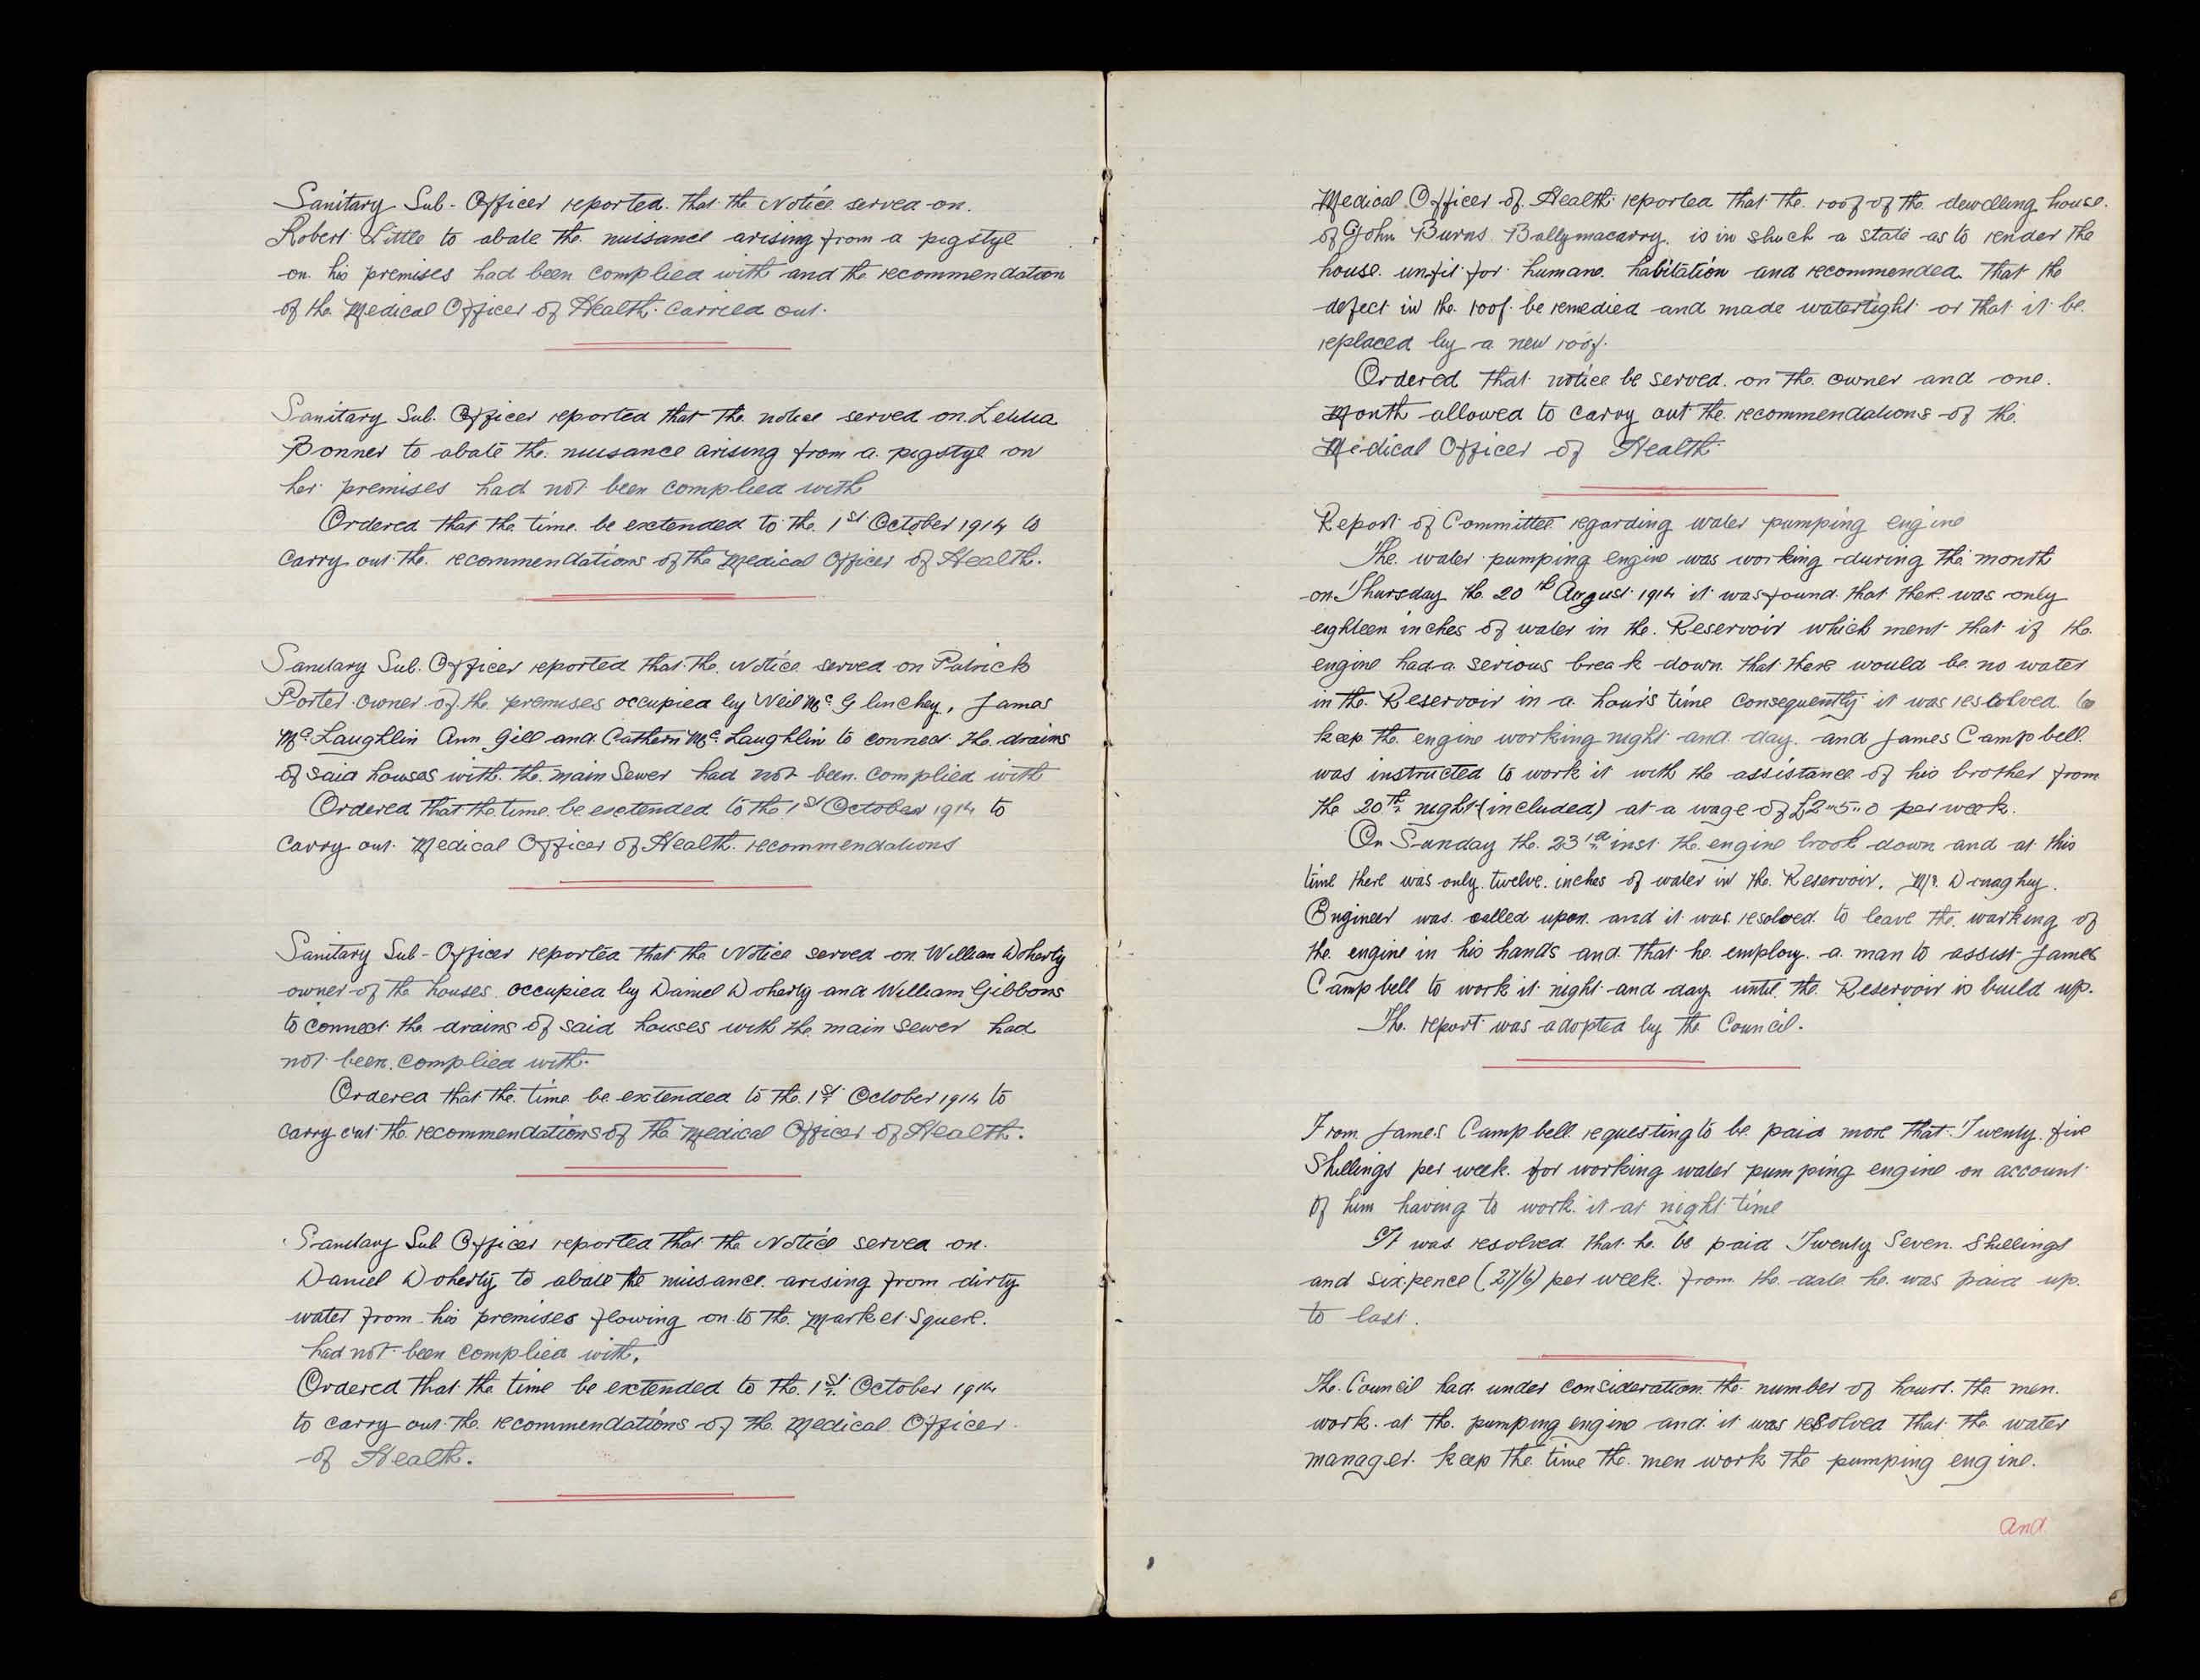 Sanitary Sub-Officer reported that the Notice served on
Robert Little to abate the nuisance arising from a pigstye
on his premises had been complied with and the recommendation
of the Medical Officer of Health carried out.
Sanitary Sub. Officer reported that the notice served on
Bonner to abate the nuisance arising from a pigstye on
her premises had not been complied with
Ordered that the time be extended to the 1st October 1914 to
carry out the recommendations of the Medical Officer of Health.
Sanitary Sub. Officer reported that the Notice served on Patrick
Porter owner of the premises occupied by Neil McGlinchey, James
McLaughlin Ann Gill and Cathern McLaughlin to connect the drains
of said houses with the main Sewer had not been complied with
Ordered that the time be extended to the 1st October 1914 to
carry out Medical Officer of Health recommendations
Sanitary Sub-Officer reported that the Notice served on William Doherty
owner of the houses occupied by Daniel Doherty and William Gibbons
to connect the drains of said houses with the main sewer had
not been complied with.
Ordered that the time be extended to the 1st October 1914 to
carry out the recommendations of the Medical Officer of Health.
Sanitary Sub Officer reported that the Notice served on
Daniel Doherty to abate the nuisance arising from dirty
water from his premises flowing on to the Market Squere.
had not been complied with.
Ordered that the time be extended to the 1st October 1914
to carry out the recommendations of the Medical Officer
of Health.
Medical Officer of Health reported that the roof of the dewelling house
of John Burns Ballymacarry is in shuch a state as to render the
house unfit for humane habitation and recommended that the
defect in the roof be remedied and made watertight or that it be
replaced by a new roof.
Ordered that notice be served on the owner and one
Month allowed to carry out the recommendations of the
Medical Officer of Health
Report of Committee regarding water pumping engine
The water pumping engine was working during the month
on Thursday the 20th August 1914 it was found that there was only
eighteen inches of water in the Reservoir which ment that if the
engine had a serious break down that there would be no water
in the Reservoir in a hour's time consequently it was resolved to
keep the engine working night and day and James Campbell
was instructed to work it with the assistance of his brother from
the 20th night (included) at a wage of £2"5"0 per week.
On Sunday the 23rd inst the engine brook down and at this
time there was only twelve inches of water in the Reservoir. Mr. Donaghey
Engineer was called upon and it was resolved to leave the working of
the engine in his hands and that he employ a man to assist James
Campbell to work it night and day until the Reservoir is build up.
The report was adopted by the Council.
From James Campbell requesting to be paid more that Twenty five
Shillings per week for working water pumping engine on account
of him having to work it at night time
It was resolved that he be paid Twenty Seven Shillings
and sixpence (27/6) per week from the date he was paid up
to last.
The Council had under consideration the number of hours the men
work at the pumping engine and it was resolved that the water
manager keep the time the men work the pumping engine.
and